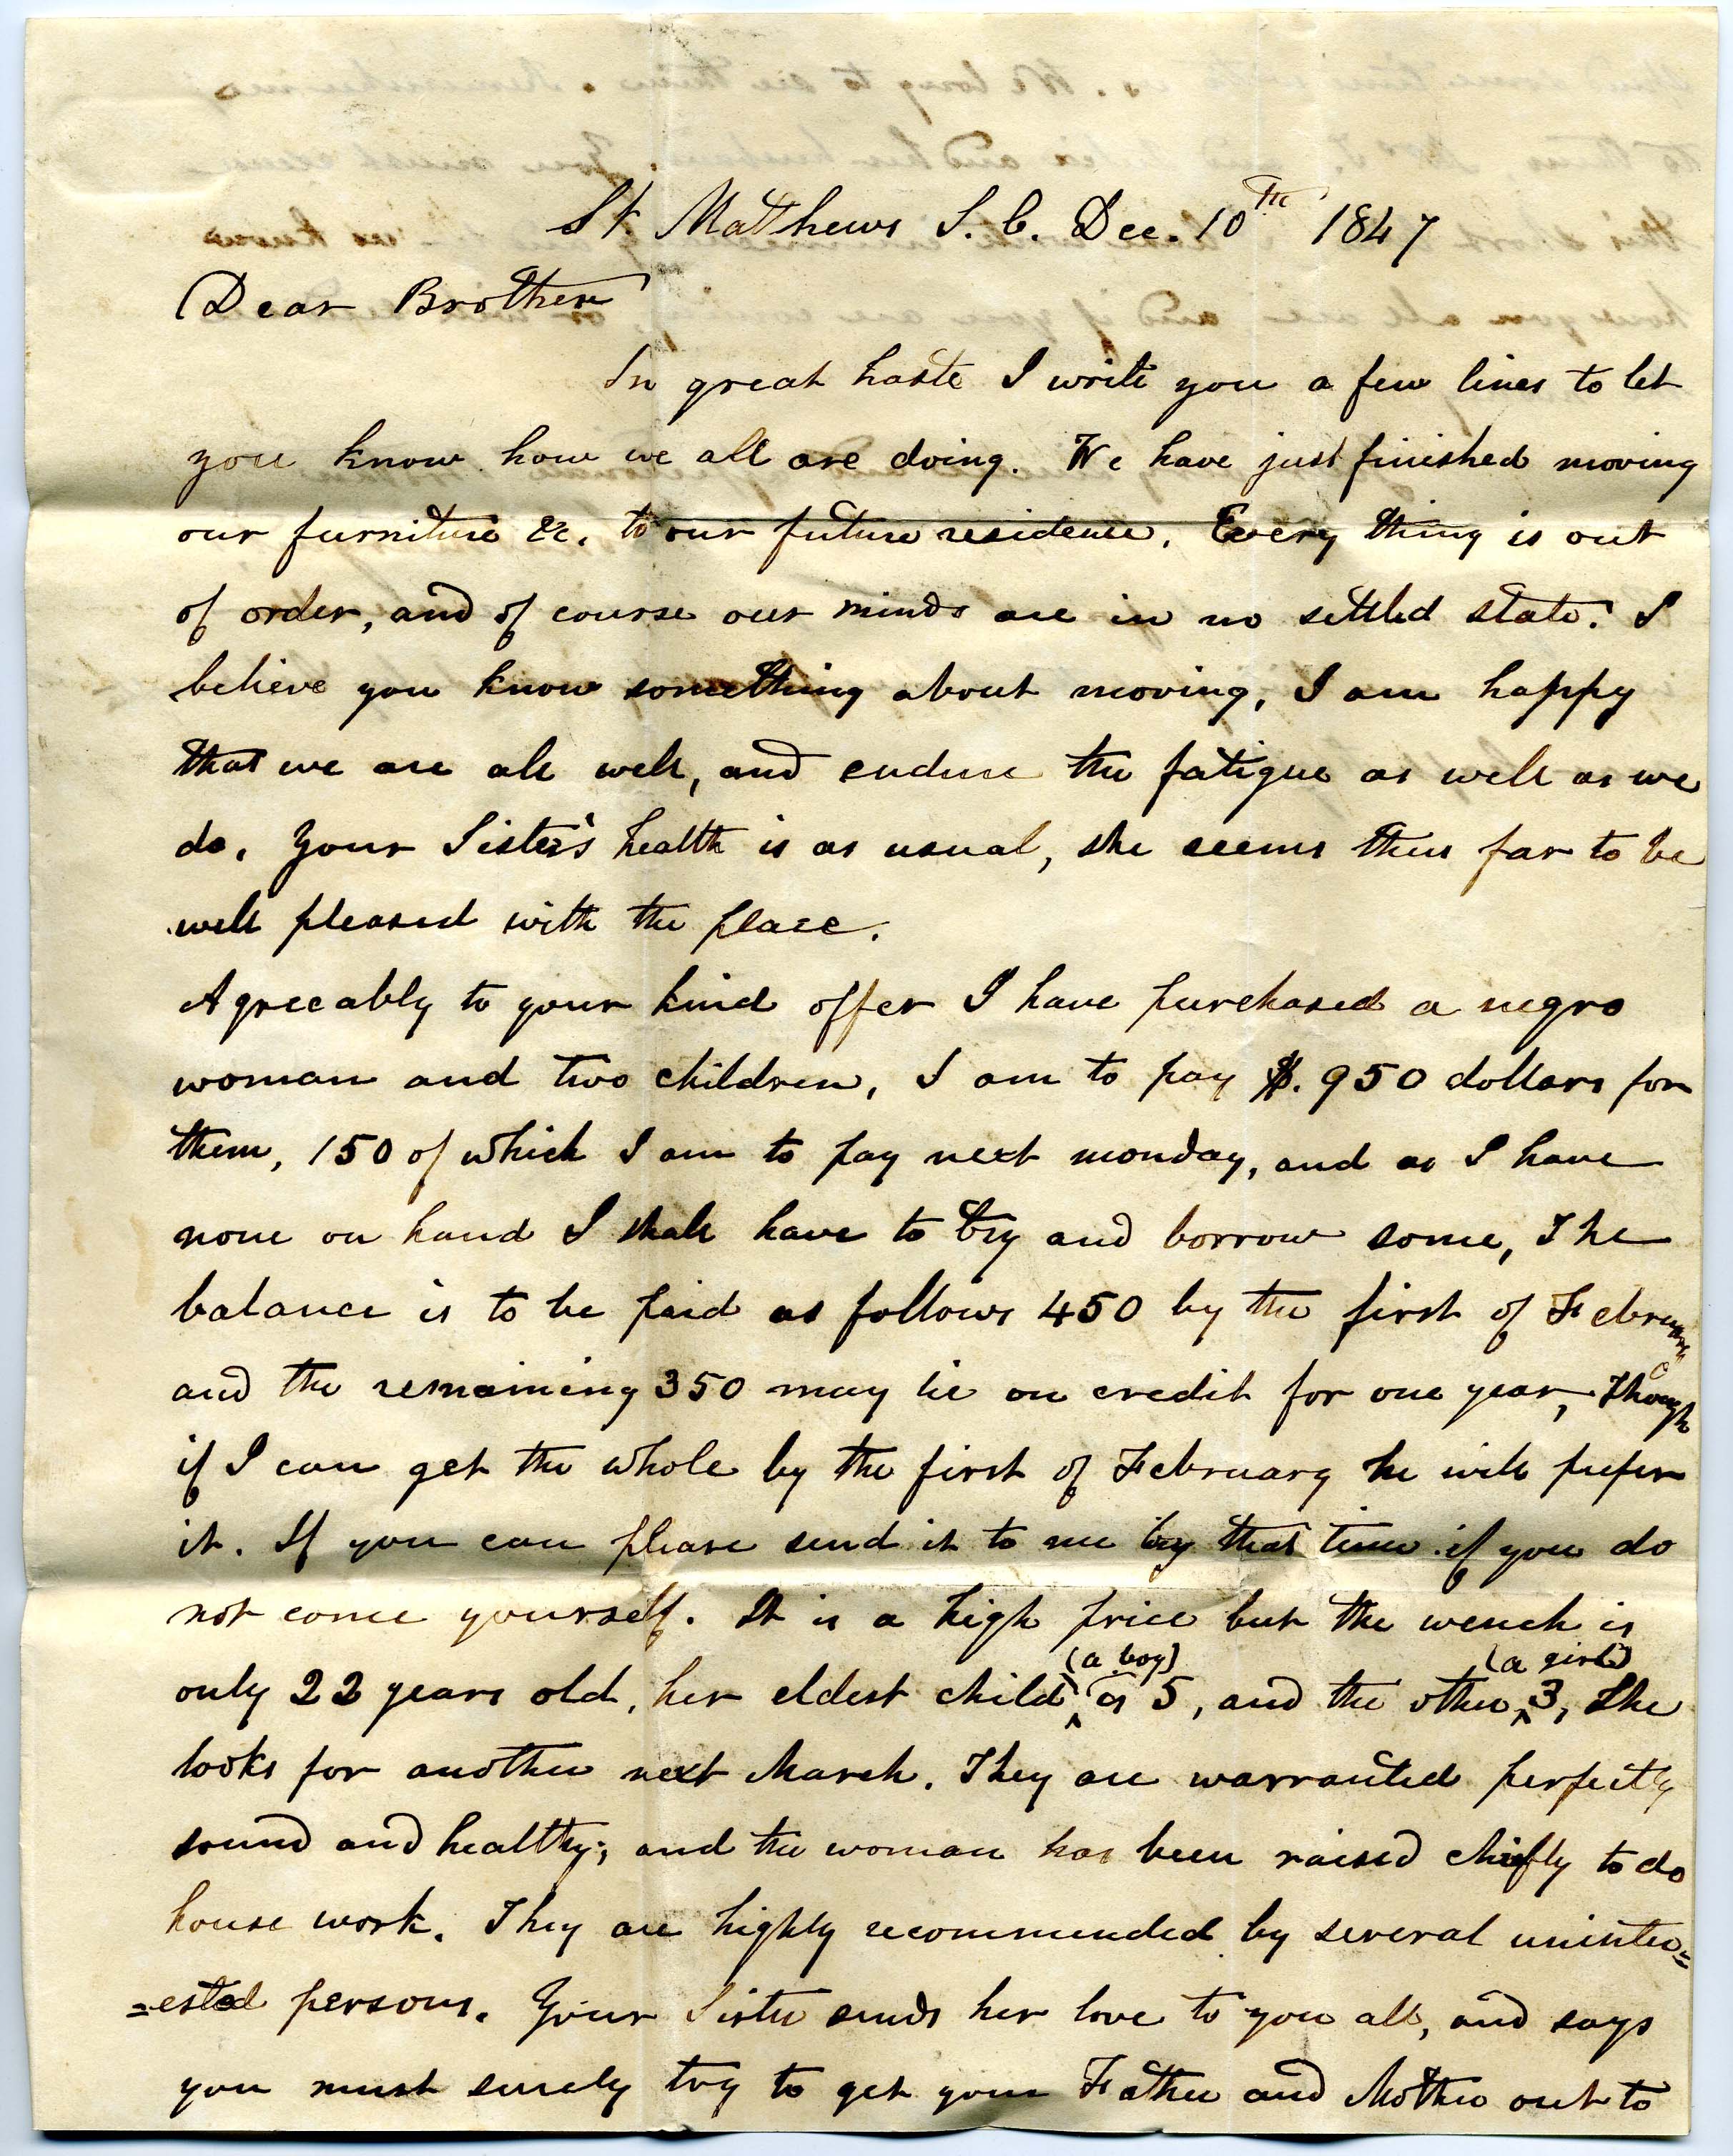 St Matthews S. C. Dec. 10th 1847
Dear Brother
In great haste I write you a few lines to let
you know how we all are doing. We have just finished moving
our furniture &c. to our future residence. Every thing is out
of order, and of course our minds are in no settled state. I
believe you know something about moving, I am happy
that we are all well, and endure the fatigue as well as we
do. Your Sister's health is as usual, she seems thus far to be
well pleased with the place.
Agreeably to your kind offer I have purchased a negro
woman and two children, I am to pay $. 950 dollars for
them, 150 of which I am to pay next monday, and as I have
none on hand I shall have to try and borrow some, The
balance is to be paid as follows 450 by the first of February
and the remaining 350 may lie on credit for one year, Though
if I can get the whole by the first of February he will prefer
it. If you can please send it to me by that time if you do
not come yourself. It is a high price but the wench is
only 22 years old, her eldest child (a boy) is 5, and the other (a girl) 3, She
looks for another next March. They are warranted perfectly
sound and healthy; and the woman has been raised chiefly to do
house work. They are highly recommended by several uninter=
=ested persons. Your Sister sends her love to you all, and says
you must surely try to get your Father and Mother out to